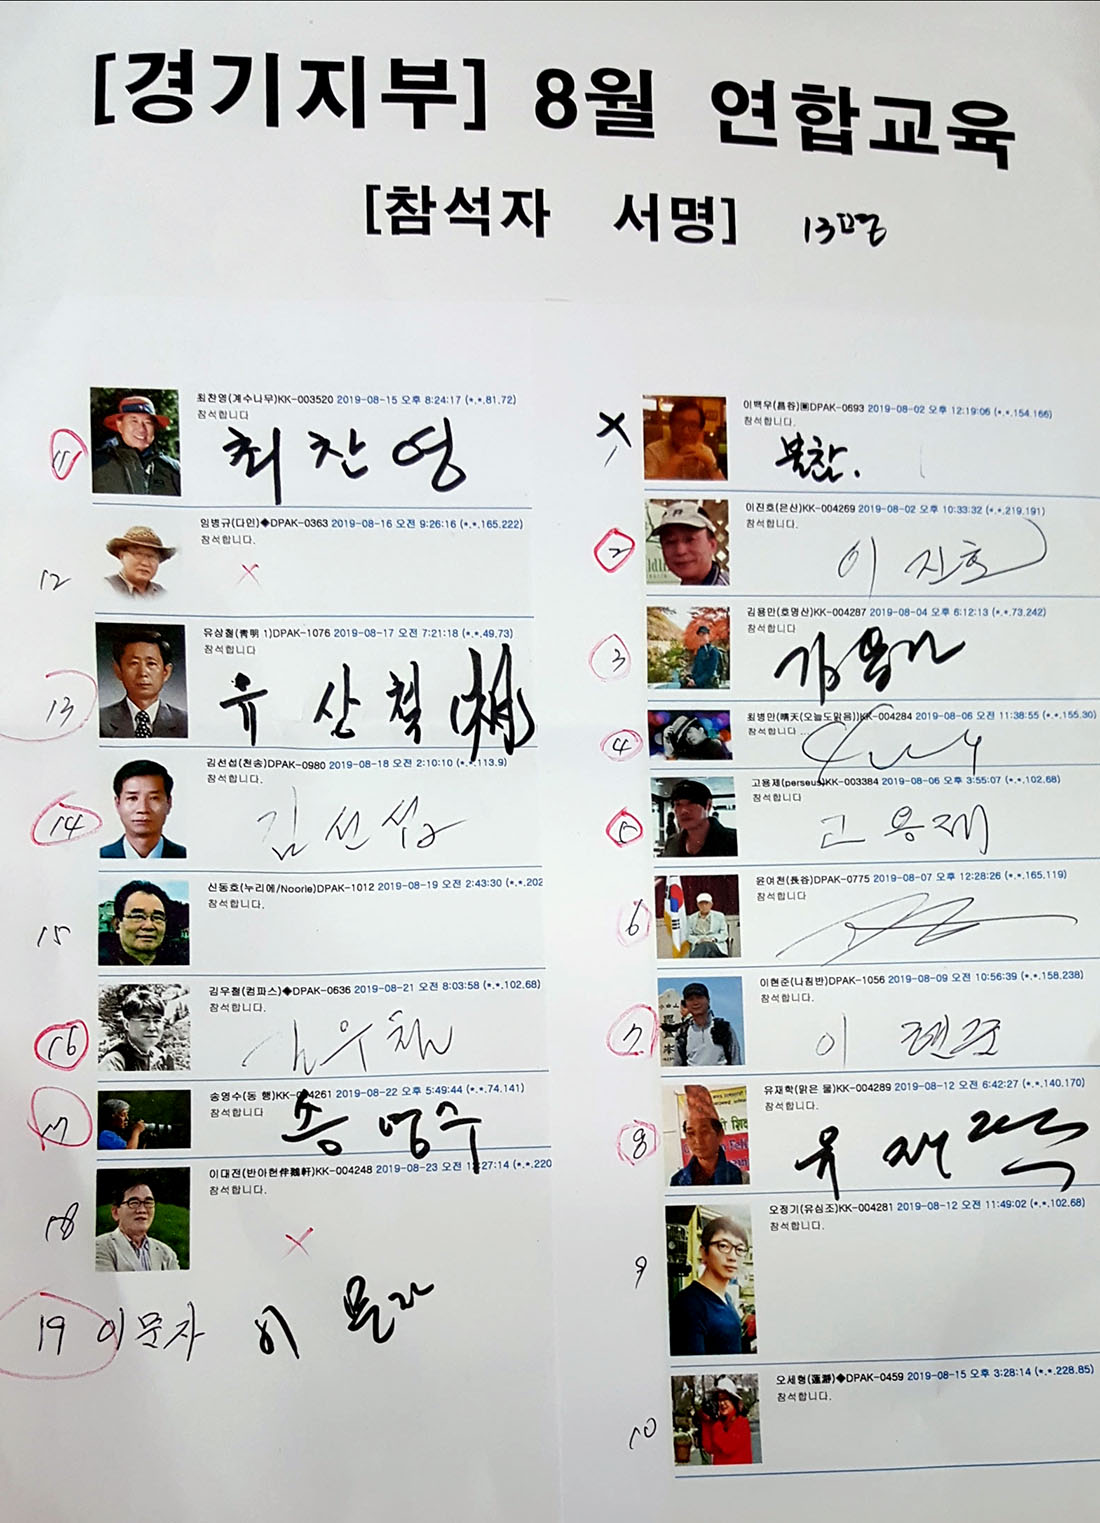 [경기지부] 8월 연합교육
[참석자 서명] 13명
11
최찬영(계수나무)KK-003520 2019-08-15 오후 8:24:17 (*.*.81.72)
참석합니다
최찬영
12
임병규(다인)◆DPAK-0363 2019-08-16 오전 9:26:16 (*.*.165.222)
참석합니다.
X
13
유상철(靑明 1)DPAK-1076 2019-08-17 오전 7:21:18 (*.*.49.73)
참석합니다
유 상 철
14
김선섭(천송)DPAK-0980 2019-08-18 오후 2:10:10 (*.*.113.9)
참석합니다
김선섭
15
신동호(누리에/Noorie)DPAK-1012 2019-08-19 오전 2:43:30 (*.*.202
참석합니다.
16
김우철(컴파스)◆DPAK-0636 2019-08-21 오전 8:03:58 (*.*.102.68)
참석합니다.
김우철
17
송영수(동 행)KK-004261 2019-08-22 오후 5:49:44 (*.*.74.141)
참석합니다
송영수
18
이대전(반아헌伴鵝軒)KK-004248 2019-08-23 오전 :27:14 (*.*.220
참석합니다.
X
19 이문자 이문자
X
1
이백우(昌谷)▣DPAK-0693 2019-08-02 오후 12:19:06 (*.*.154.166)
참석합니다.
불참.
2
이진호(은산)KK-004269 2019-08-02 오후 10:33:32 (*.*.219.191)
참석합니다.
이진호
3
김용만(호명산)KK-004287 2019-08-04 오후 6:12:13 (*.*.73.242)
참석합니다
김용만
4
최병만(晴天(오늘도맑음))KK-004284 2019-08-06 오전 11:38:55 (*.*.155.30)
참석합니다 ...
5
고용제(perseus)KK-003384 2019-08-06 오후 3:55:07 (*.*.102.68)
참석합니다
고용제
6
윤여천(長谷)DPAK-0775 2019-08-07 오후 12:28:26 (*.*.165.119)
참석합니다
7
이현준(나침반)DPAK-1056 2019-08-09 오전 10:56:39 (*.*.158.238)
참석합니다.
이현준
8
유재학(맑은 물)KK-004289 2019-08-12 오전 6:42:27 (*.*.140.170)
참석합니다.
유재학
9
오정기(유심조)KK-004281 2019-08-12 오전 11:49:02 (*.*.102.68)
참석합니다.
10
오세형(蓮瀞)◆DPAK-0459 2019-08-15 오후 3:28:14 (*.*.228.85)
참석합니다.